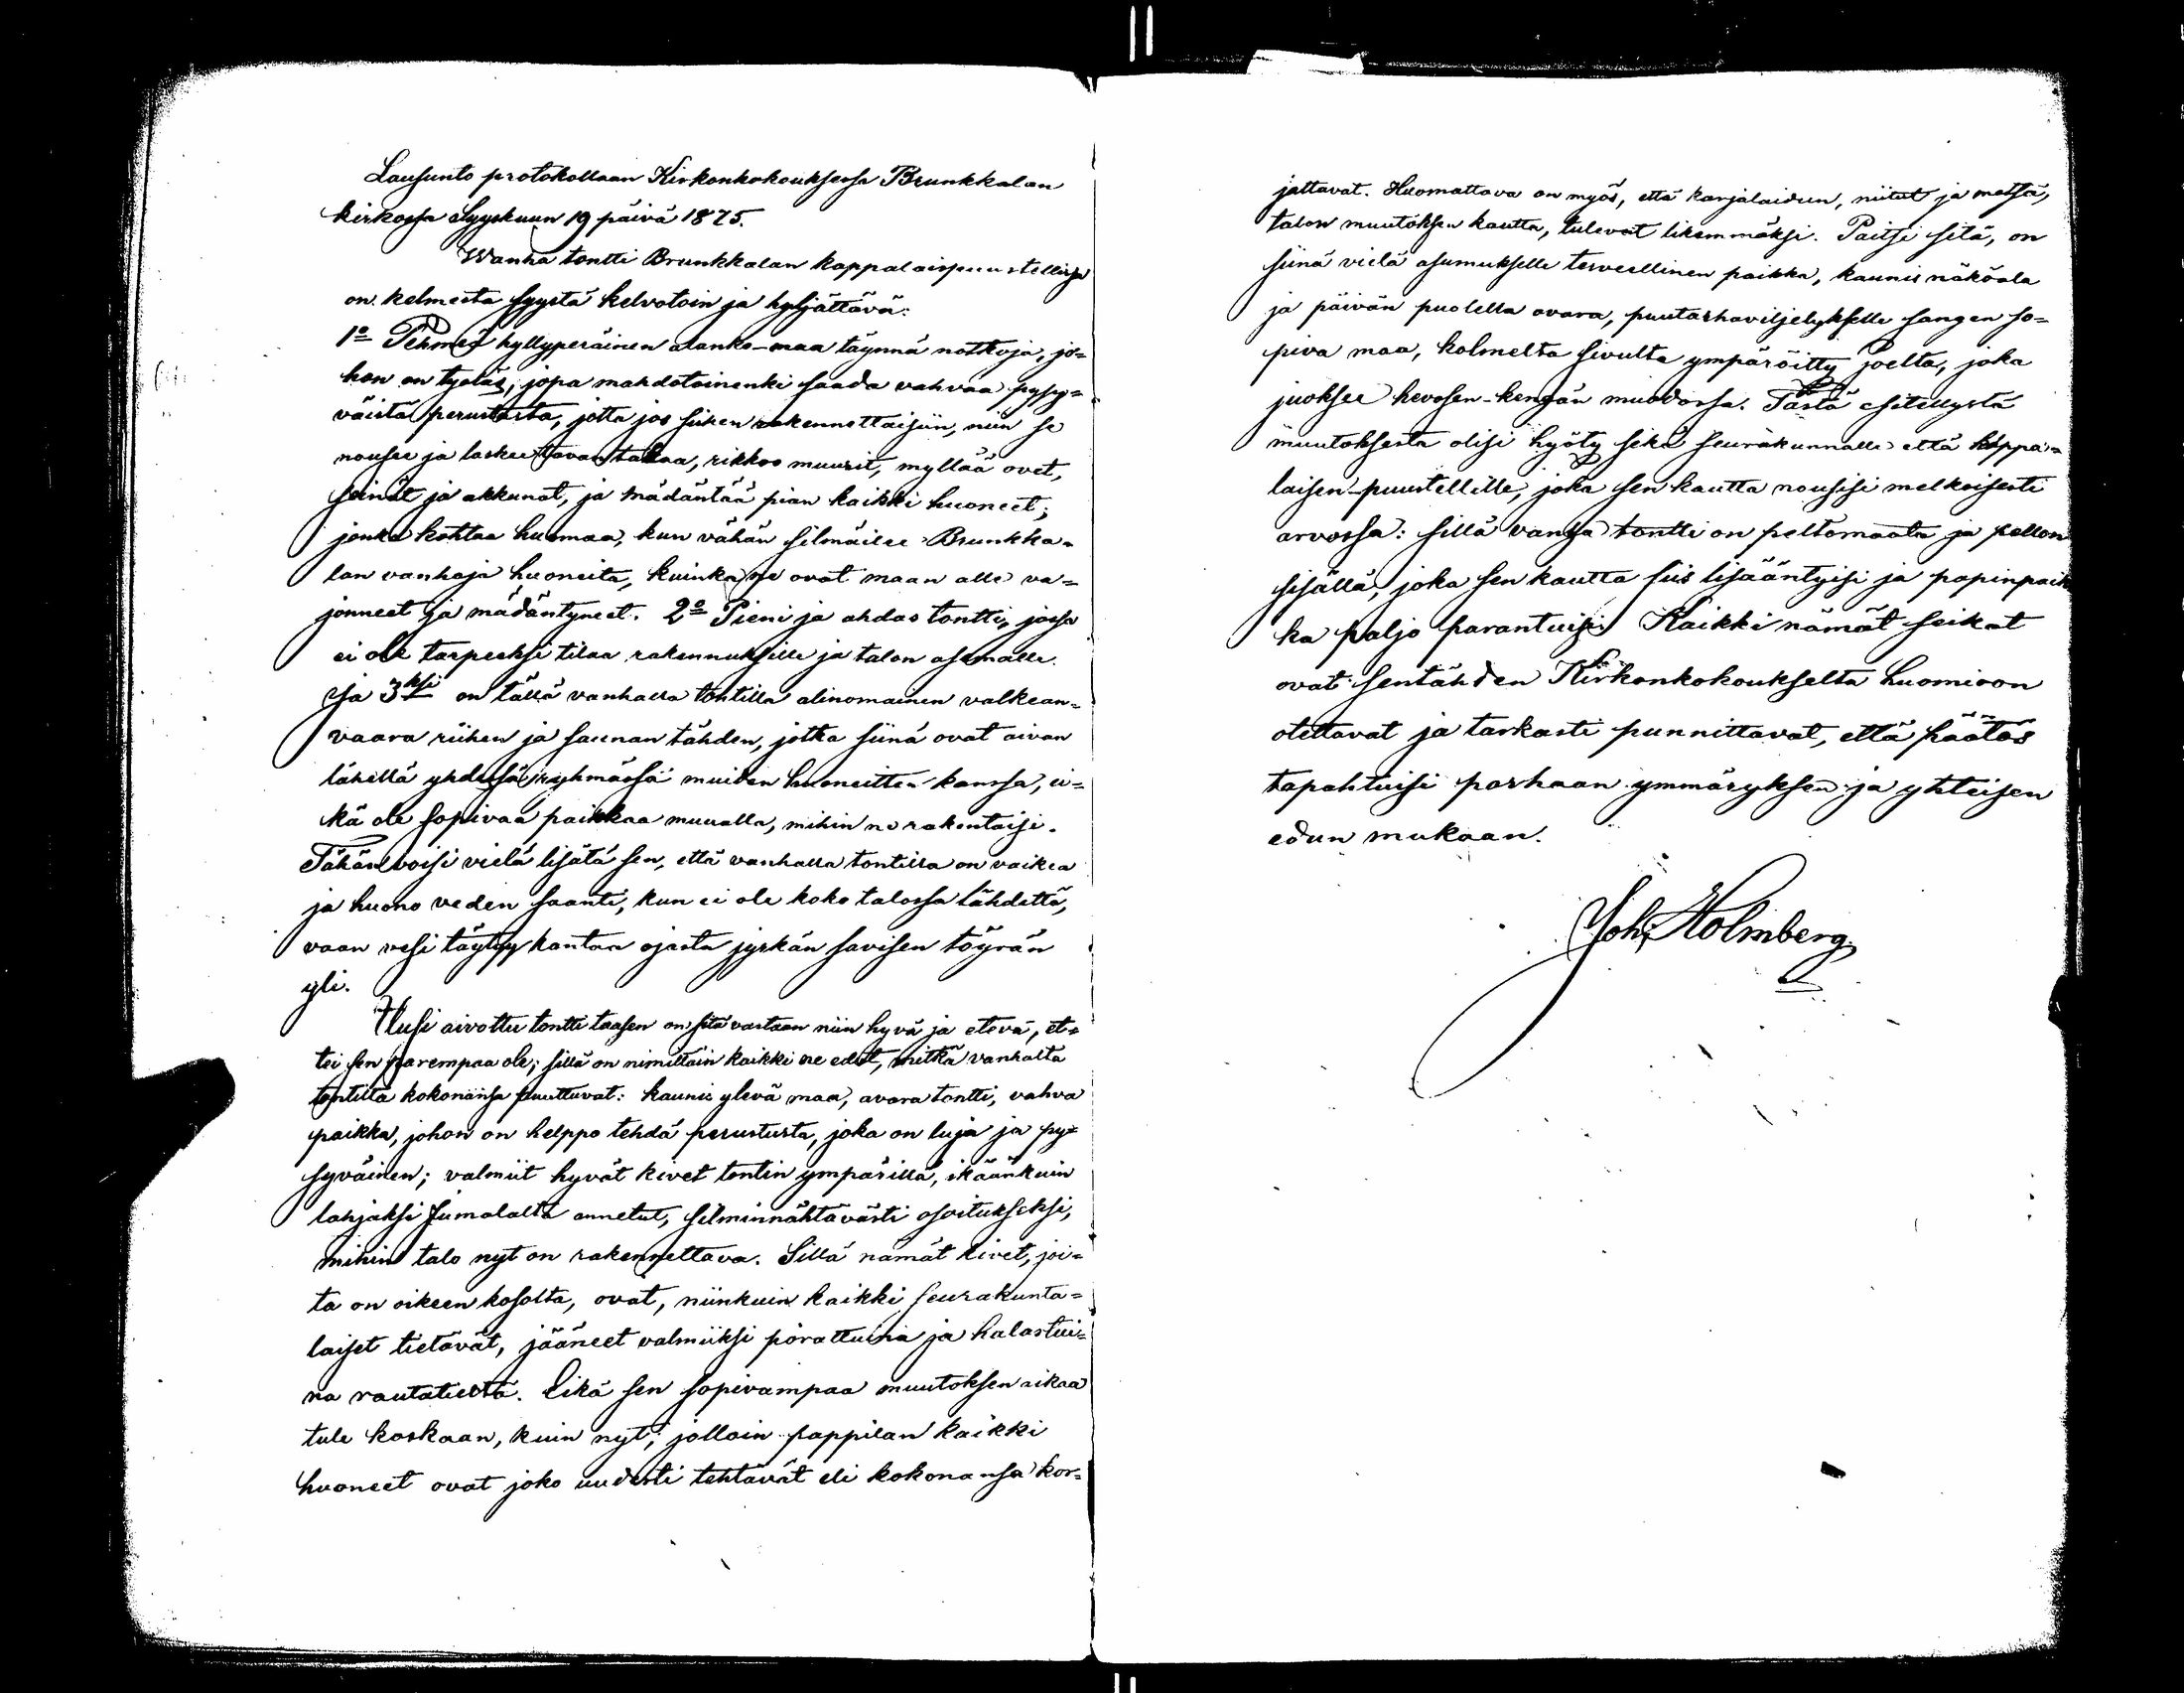 Lausunto protokollaan Kirkonkokouksessa Brunkkalan
kirkossa Syyskuun 19 päivä 1875.
Wanha tontti Brunkkalan kappalaispuustellissa
on kolmesta syystä kelvotoin ja hyljättävä:
1º Pehmeä hyllyperäinen alanko-maa täynnä notkoja, jo=
hon on työläs, jopa mahdotoinenki saada vahvaa pysy=
väistä perustusta, jotta jos siihen rakennettaisiin, niin se
nousee ja laskee tavan takaa, rikkoo muurit, myllää ovet,
seinät ja akkunat, ja mädäntää pian kaikki huoneet;
jonka kohtaa huomaa, kun vähän silmäilee Brunkka=
lan vanhoja huoneita, kuinka ne ovat maan alle va=
jonneet ja mädäntyneet. 2º Pieni ja ahdas tontti, jossa
ei ole tarpeeksi tilaa rakennuksille ja talon asemalle.
Ja 3ksi on tällä vanhalla tontilla alinomainen valkean=
vaara riihen ja saunan tähden, jotka siinä ovat aivan
lähellä yhdessä ryhmässä muiden huoneitten kanssa, ei=
kä ole sopivaa paikkaa muualla, mihin ne rakentaisi.
Tähän voisi vielä lisätä sen, että vanhalla tontilla on vaikea
ja huono veden saanti, kun ei ole koko talossa lähdettä,
vaan vesi täytyy kantaa ojasta jyrkän savisen töyrän
yli.
Uusi aivottu tontti taasen on sitä vastaan niin hyvä ja etevä, et=
tei sen parempaa ole; sillä on nimittäin kaikki ne edut, mitkä vanhalta
tontilta kokonansa puuttuvat: kaunis ylevä maa, avara tontti, vahva
paikka, johon on helppo tehdä perustusta, joka on luja ja py=
syväinen; valmiit hyvät kivet tontin ympärillä, ikäänkuin
lahjaksi Jumalalta annetut, silminnähtävästi osoitukseksi,
mihin talo nyt on rakennettava. Sillä nämät kivet, joi=
ta on oikeen kosolta, ovat, niinkuin kaikki seurakunta=
laiset tietävät, jääneet valmiiksi porattuina ja halastui=
na rautatieltä. Eikä sen sopivampaa muutoksen aikaa
tule koskaan, kuin nyt, jolloin pappilan kaikki
huoneet ovat joko uudesti tehtävät eli kokonansa kor=
jattavat. Huomattava on myös, että karjalaidun, niitut ja metsä,
talon muutoksen kautta, tulevat likemmäksi. Paitsi sitä, on
siinä vielä asumukselle terveellinen paikka, kaunis näköala
ja päivän puolella avara, puutarhaviljelykselle sangen so=
piva maa, kolmelta sivulta ympäröitty joelta, joka
juoksee hevosen-kengän muodossa. Tästä esitellystä
muutoksesta olisi hyöty sekä seurakunnalle että kappa=
laisen-puustellille, joka sen kautta nousisi melkoisesti
arvossa: sillä vanha tontti on peltomaata ja pellon
sisällä, joka sen kautta siis lisääntyisi ja papinpaik
ka paljo parantuisi. Kaikki nämät seikat
ovat sentähden Kirkonkokoukselta huomioon
otettavat ja tarkasti punnittavat, että päätös
tapahtuisi parhaan ymmäryksen ja yhteisen
edun mukaan.
Joh. Holmberg.